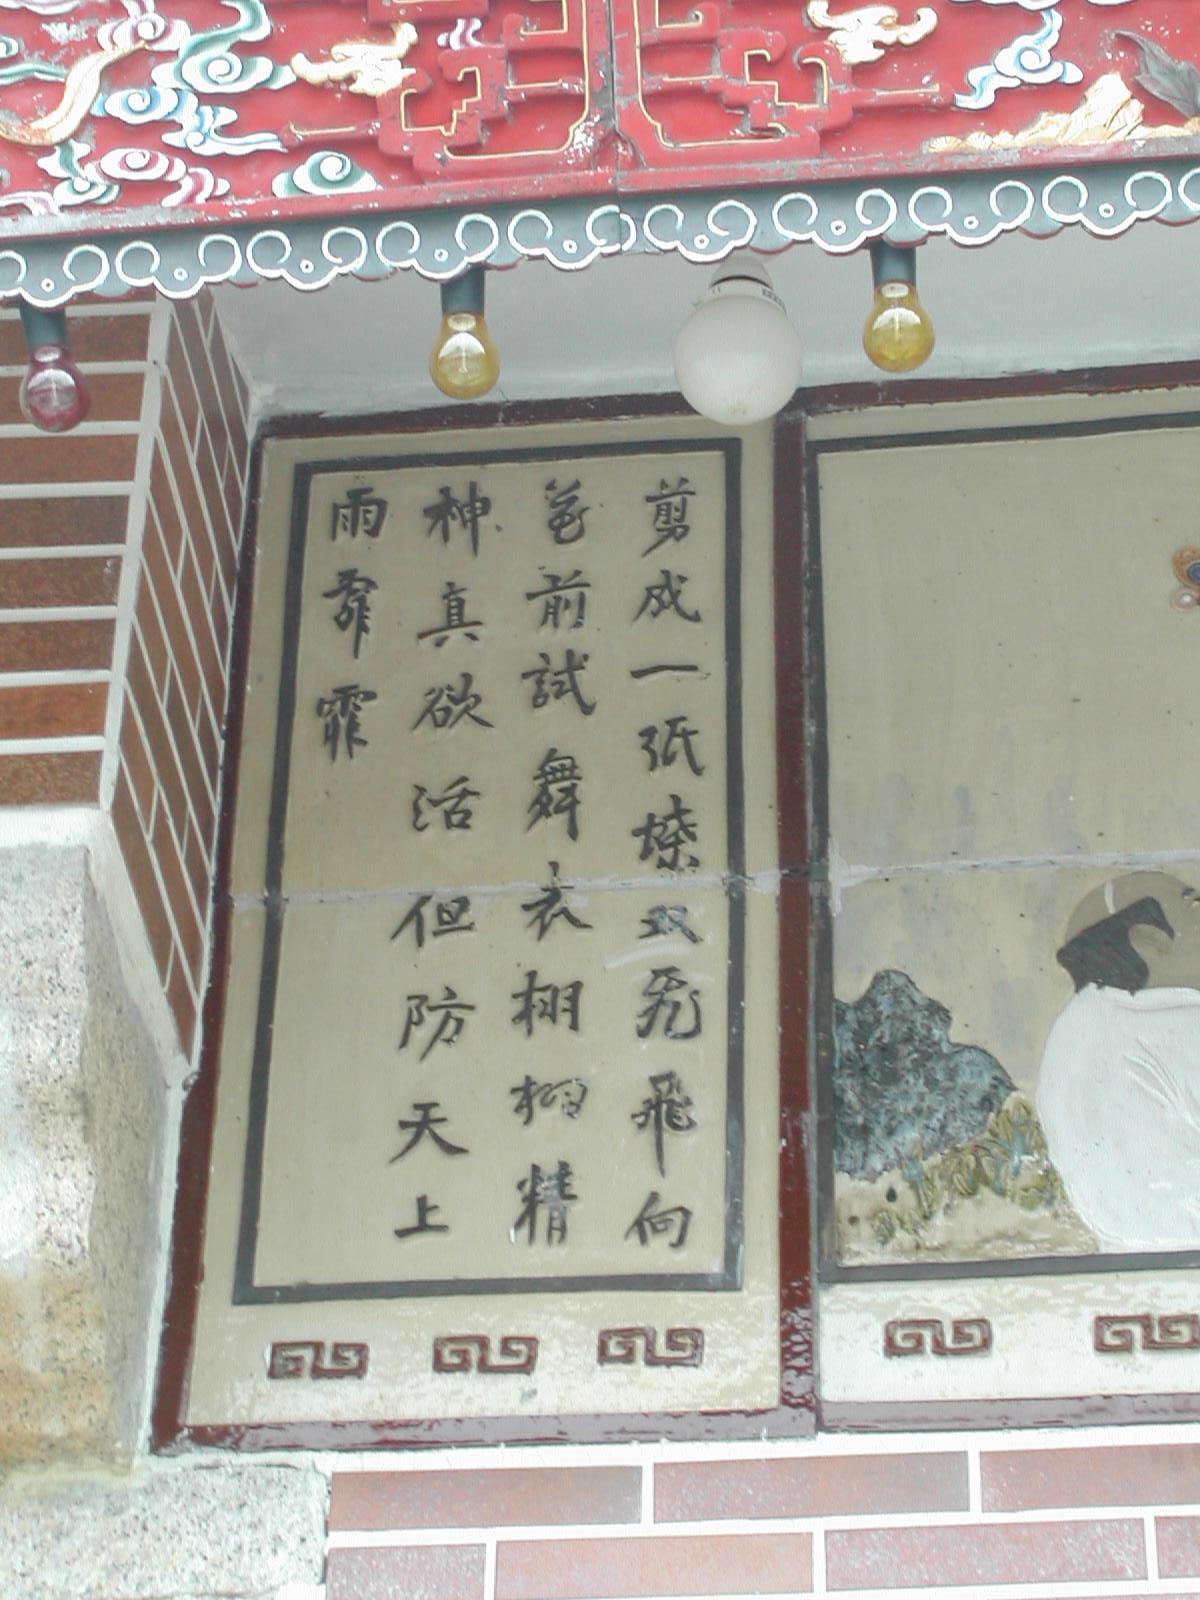 剪成一紙蝶双飛飛向
花前試舞衣栩栩精
神真欲活但防天上
雨霏霏